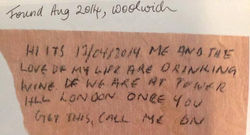 Found Aug 2014, Woolwich
HI ITS 12/04/2014 ME AND THE
LOVE OF MY LIFE ARE DRINKING
WINE WE ARE AT TOWER
HILL LONDON ONCE YOU
GET THIS, CALL ME ON